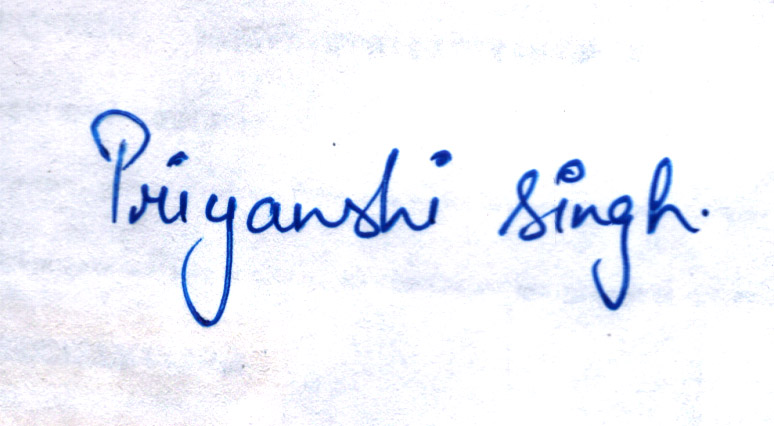 Priyanshi singh.